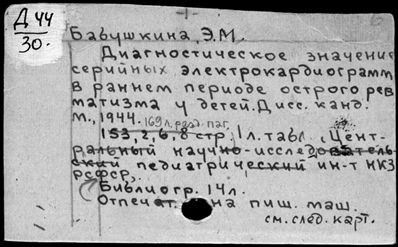 Д 44
30.
Бабушкина, Э.М.
Диагностическое значение
серийных электрокардиограмм
в раннем периоде острого рев
матизма у детей. Дисс. канд.
М., 1944. 169 л. разд. паг.
153, 2, 6, 8 стр., 1 л. табл. (Цент-
ральный научно-исследователь-
ский педиатрический ин-т НКЗ
РСФСР)
Библиогр. 14 л.
Отпечат. на пиш. маш.
см. след. карт.